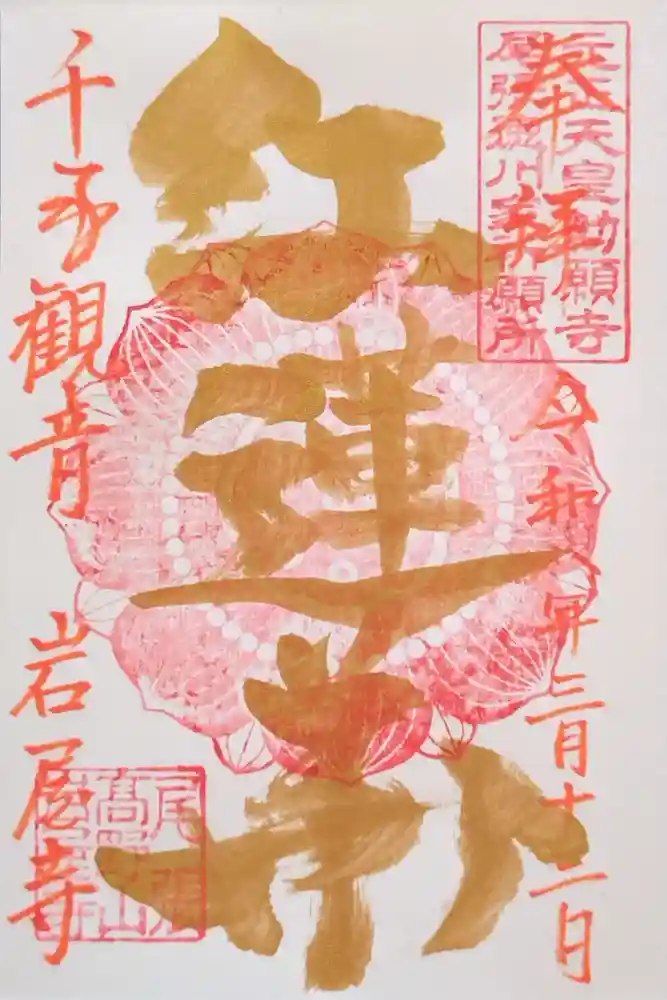 奉拝
元正天皇勅願寺
尾張徳川家祈願所
令和八年三月十二日
紅蓮
千手観音
岩屋寺
尾張
高野山